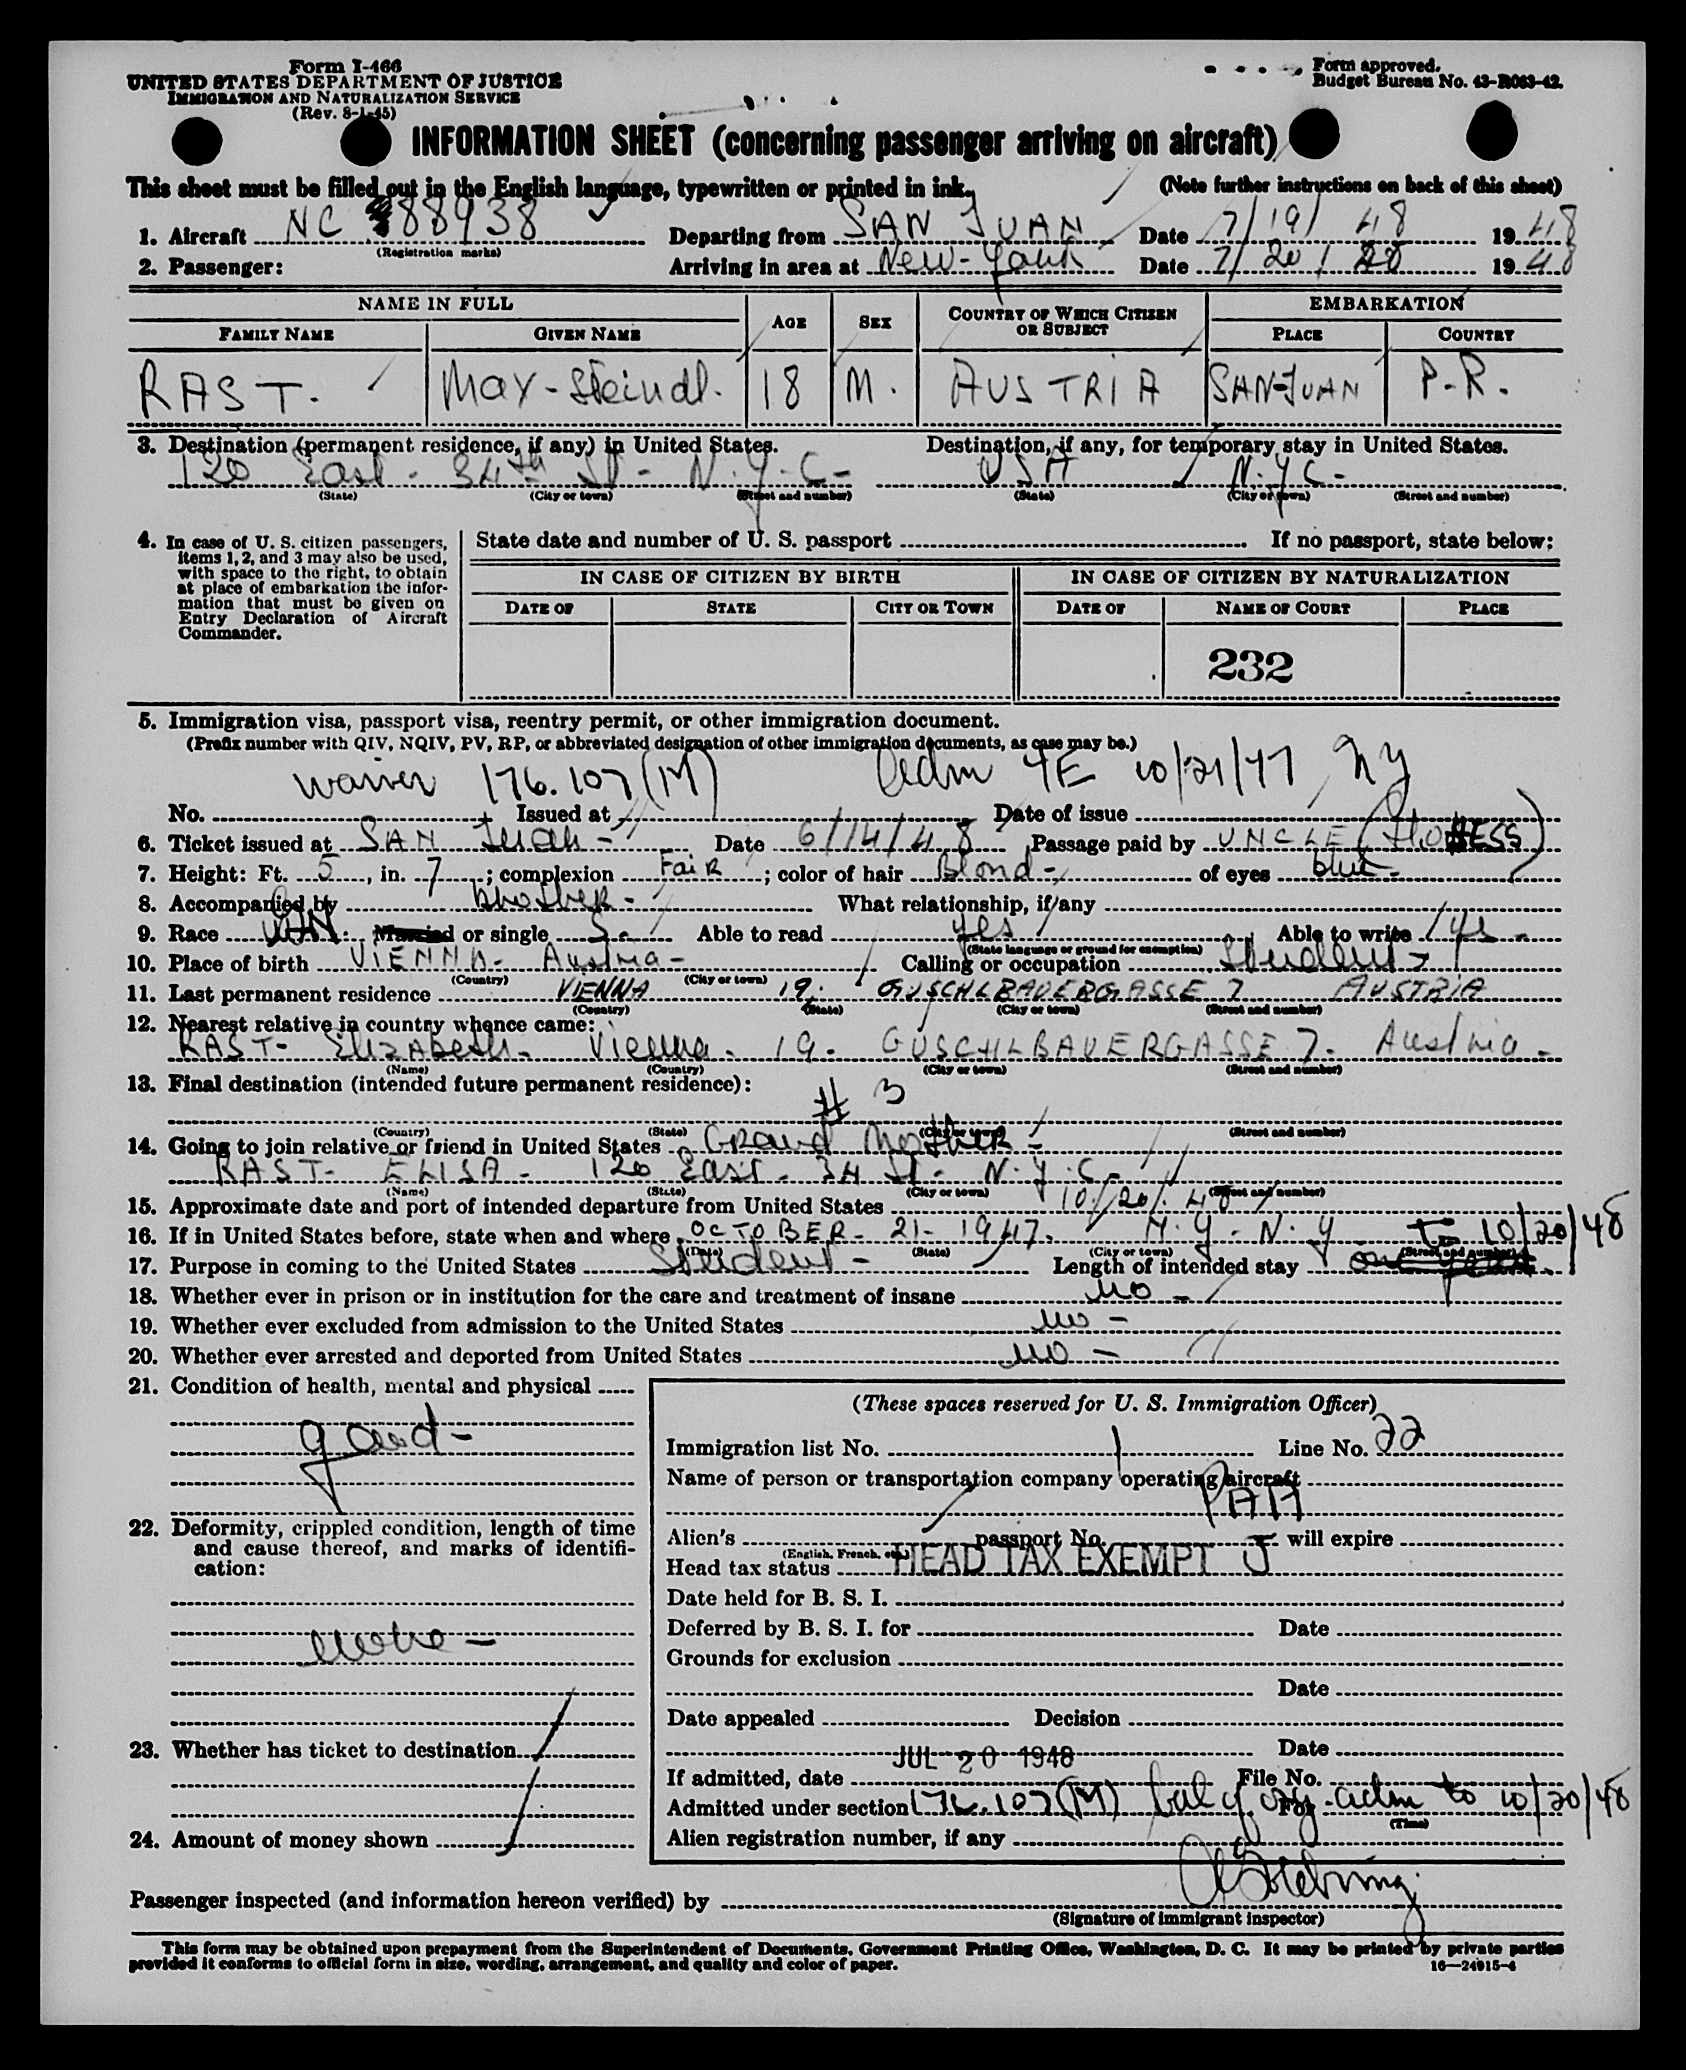 Form I-466
UNITED STATES DEPARTMENT OF JUSTICE
IMMIGRATION AND NATURALIZATION SERVICE
(Rev. 8-1-45)
Form approved.
Budget Bureau No. 43-R083-42.
INFORMATION SHEET (concerning passenger arriving on aircraft)
This sheet must be filled out in the English language, typewritten or printed in ink.
(Note further instructions on back of this sheet)
1. Aircraft NC 88938 Departing from SAN JUAN Date 7/19/48 1948
(Registration marks)
2. Passenger: Arriving in area at New-York Date 7/20/ 1948
NAME IN FULL AGE SEX COUNTRY OF WHICH CITIZEN OR SUBJECT EMBARKATION
FAMILY NAME GIVEN NAME PLACE COUNTRY
RAST. Max-Steindl. 18 M. AUSTRIA SAN-JUAN P.R.
3. Destination (permanent residence, if any) in United States. Destination, if any, for temporary stay in United States.
120 East - 34th St - N.Y.C- USA N.Y.C-
(State) (City or town) (Street and number) (State) (City or town) (Street and number)
4. In case of U. S. citizen passengers, items 1, 2, and 3 may also be used, with space to the right, to obtain at place of embarkation the information that must be given on Entry Declaration of Aircraft Commander.
State date and number of U. S. passport If no passport, state below:
IN CASE OF CITIZEN BY BIRTH IN CASE OF CITIZEN BY NATURALIZATION
DATE OF STATE CITY OR TOWN DATE OF NAME OF COURT PLACE
232
5. Immigration visa, passport visa, reentry permit, or other immigration document.
(Prefix number with QIV, NQIV, PV, RP, or abbreviated designation of other immigration documents, as case may be.)
waiver 176.107(M) Adm 4E 10/21/47 NY
No. Issued at Date of issue
6. Ticket issued at SAN Juan - Date 6/14/48 Passage paid by UNCLE
7. Height: Ft. 5, in. 7; complexion FAIR; color of hair Blond - of eyes blue -
8. Accompanied by brother - What relationship, if any
9. Race Married or single S- Able to read yes Able to write yes -
(State language or ground for exemption)
10. Place of birth VIENNA - Austria - Calling or occupation Student -
(Country) (City or town)
11. Last permanent residence VIENNA 19. GUSCHLBAUERGASSE 7 AUSTRIA
(Country) (State) (City or town) (Street and number)
12. Nearest relative in country whence came:
RAST- ElizABeth - Vienna - 19. GUSCHLBAUERGASSE 7. Austria -
(Name) (Country) (City or town) (Street and number)
13. Final destination (intended future permanent residence):
# 3
(Country) (State) (City or town) (Street and number)
14. Going to join relative or friend in United States Grand Mother -
RAST- ELISA - 120 East - 34 St - N.Y.C-
(Name) (State) (City or town) (Street and number)
15. Approximate date and port of intended departure from United States 10/20/48
16. If in United States before, state when and where OCTOBER - 21 - 1947. N.Y - N.Y
(Date) (State) (City or town) (Street and number)
17. Purpose in coming to the United States Student - Length of intended stay To 10/20/48
18. Whether ever in prison or in institution for the care and treatment of insane no -
19. Whether ever excluded from admission to the United States no -
20. Whether ever arrested and deported from United States no -
21. Condition of health, mental and physical
good -
22. Deformity, crippled condition, length of time and cause thereof, and marks of identification:
none -
23. Whether has ticket to destination
24. Amount of money shown
(These spaces reserved for U. S. Immigration Officer)
Immigration list No. 1 Line No. 22
Name of person or transportation company operating aircraft
PAA
Alien's passport No. will expire
(English, French, etc.)
Head tax status HEAD TAX EXEMPT J
Date held for B. S. I.
Deferred by B. S. I. for Date
Grounds for exclusion
Date
Date appealed Decision
Date
If admitted, date JUL 20 1948 File No.
Admitted under section 176.107(M) bal of orig adm to 10/20/48 For
(Time)
Alien registration number, if any
Passenger inspected (and information hereon verified) by
(Signature of immigrant inspector)
This form may be obtained upon prepayment from the Superintendent of Documents, Government Printing Office, Washington, D. C. It may be printed by private parties
provided it conforms to official form in size, wording, arrangement, and quality and color of paper.
16—24915-4